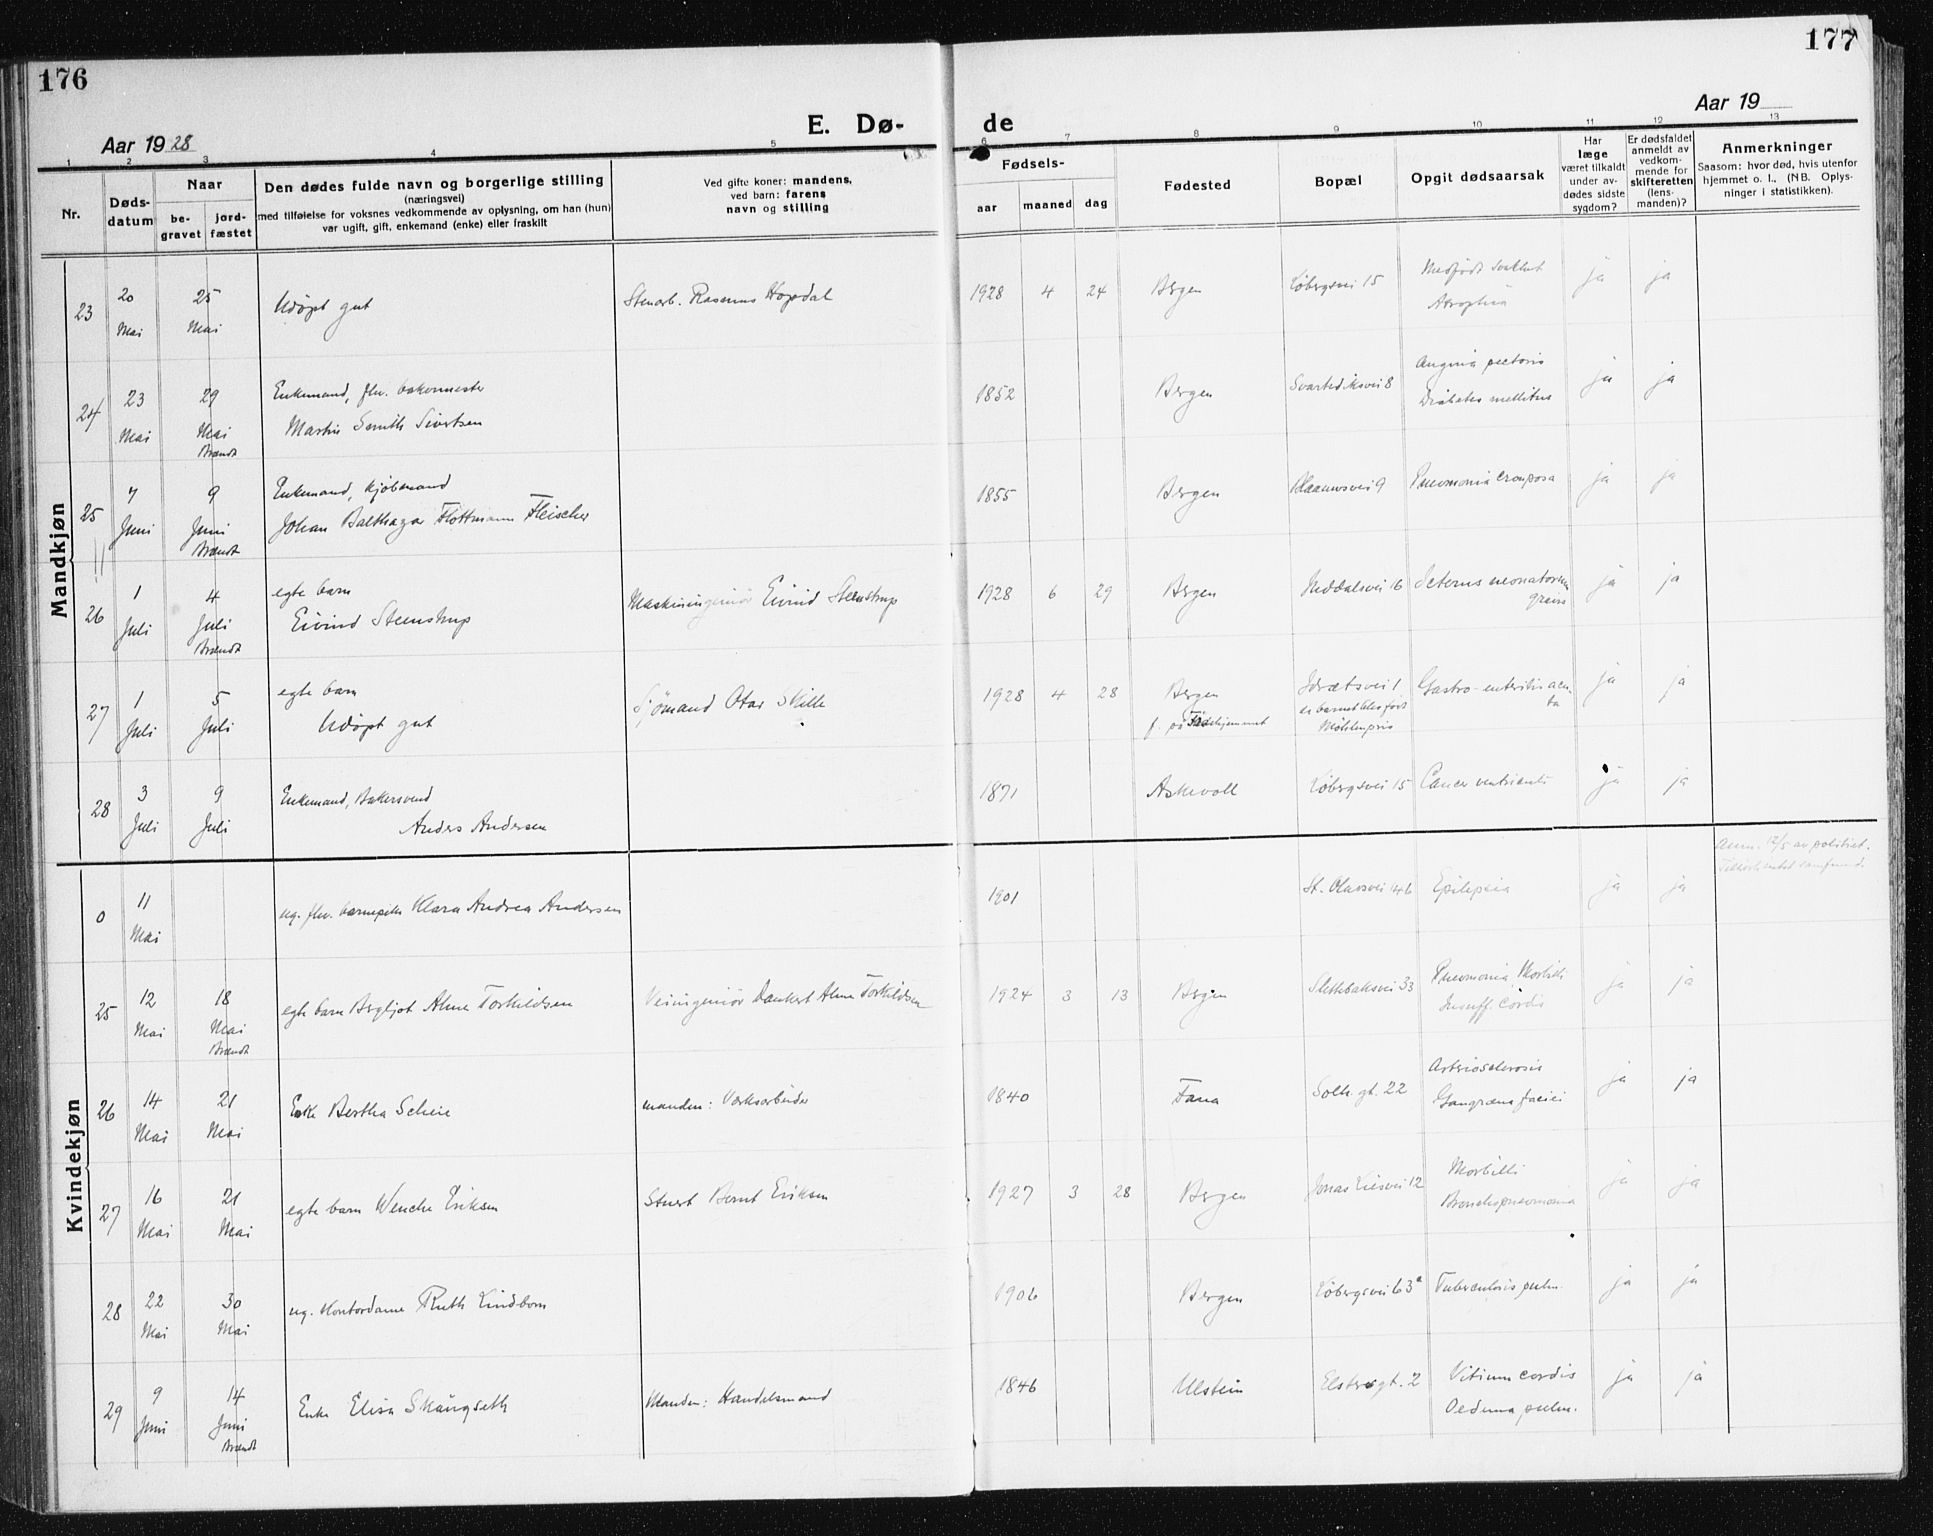 176
177
Aar 1928
E. Dø-
de
Aar 19
1 2 3 4 5 6 7 8 9 10 11 12 13
Nr.
Døds-
datum
Naar
be-
gravet
jord-
fæstet
Den dødes fulde navn og borgerlige stilling
(næringsvei)
med tilføielse for voksnes vedkommende av oplysning, om han (hun)
var ugift, gift, enkemand (enke) eller fraskilt
Ved gifte koner: mandens,
ved barn: farens
navn og stilling
Fødsels-
aar maaned dag
Fødested
Bopæl
Opgit dødsaarsak
Har
læge
været tilkaldt
under av-
dødes sidste
sygdom?
Er dødsfaldet
anmeldt av
vedkom-
mende for
skifteretten
(lens-
manden)?
Anmerkninger
Saasom: hvor død, hvis utenfor
hjemmet o. l., (NB. Oplys-
ninger i statistikken).
Mandkjøn
23 20 Mai 25 Mai Udøpt gut Stenarb. Rasmus Hopdal 1928 4 24 Bergen Løbergsvei 15 Medfødt svakhet
Atrophia ja ja
24 23 Mai 29 Mai Brændt Enkemand, fhv. bakermester
Martin Smith Sivertsen 1852 Bergen Svartediksvei 8 Angina pectoris
Diabetes mellitus ja ja
25 7 Juni 9 Juni Brændt Enkemand, Kjøbmand
Johan Balthazar Flottmann Fleischer 1855 Bergen 9 Pneumonia crouposa ja ja
26 1 Juli 4 Juli Brændt egte barn
Eivind Steenstrup Maskiningeniør Eivind Steenstrup 1928 6 29 Bergen Nuddalsvei 16 Icterus neonatorum
gravis ja ja
27 1 Juli 5 Juli egte barn
Udøpt gut Sjømand Otar Skille 1928 4 28 Bergen
f. på Fødehjemmet Idrætsvei 1
Møhlenpris Gastro-enteritis acu-
ta ja ja
28 3 Juli 9 Juli Enkemand, Bakersvend
Anders Andersen 1871 Askevoll Løbergsvei 15 Cancer ventriculi ja ja
Kvindekjøn
0 11 Mai ug. fhv. barnepike Klara Andrea Andersen 1901 St. Olavsvei 46 Epilepsia ja ja Anm. 12/5 av politiet.
25 12 Mai 18 Mai Brændt egte barn Bergljot Alme Torkildsen Veiingeniør Dankert Alme Torkildsen 1924 3 13 Bergen Slettebaksvei 33 Pneumonia, Morbilli
Insuff. cordis ja ja
26 14 Mai 21 Mai Enke Bertha Scheie manden: Værksarbeider 1840 Fana Solh. gt. 22 Arteriosclerosis
Gangræna faciei ja ja
27 16 Mai 21 Mai egte barn Wenche Eriksen Stuert Bernt Eriksen 1927 3 28 Bergen Jonas Liesvei 12 Morbilli
Bronchopneumonia ja ja
28 22 Mai 30 Mai ug. Kontordame Ruth Lindbom 1906 Bergen Løbergsvei 63a Tuberculosis pulm. ja ja
29 9 Juni 14 Juni Brændt Enke Elisa Skaugseth Manden: Handelsmand 1846 Ulstein Elstersgt. 2 Vitium cordis
Oedema pulm. ja ja